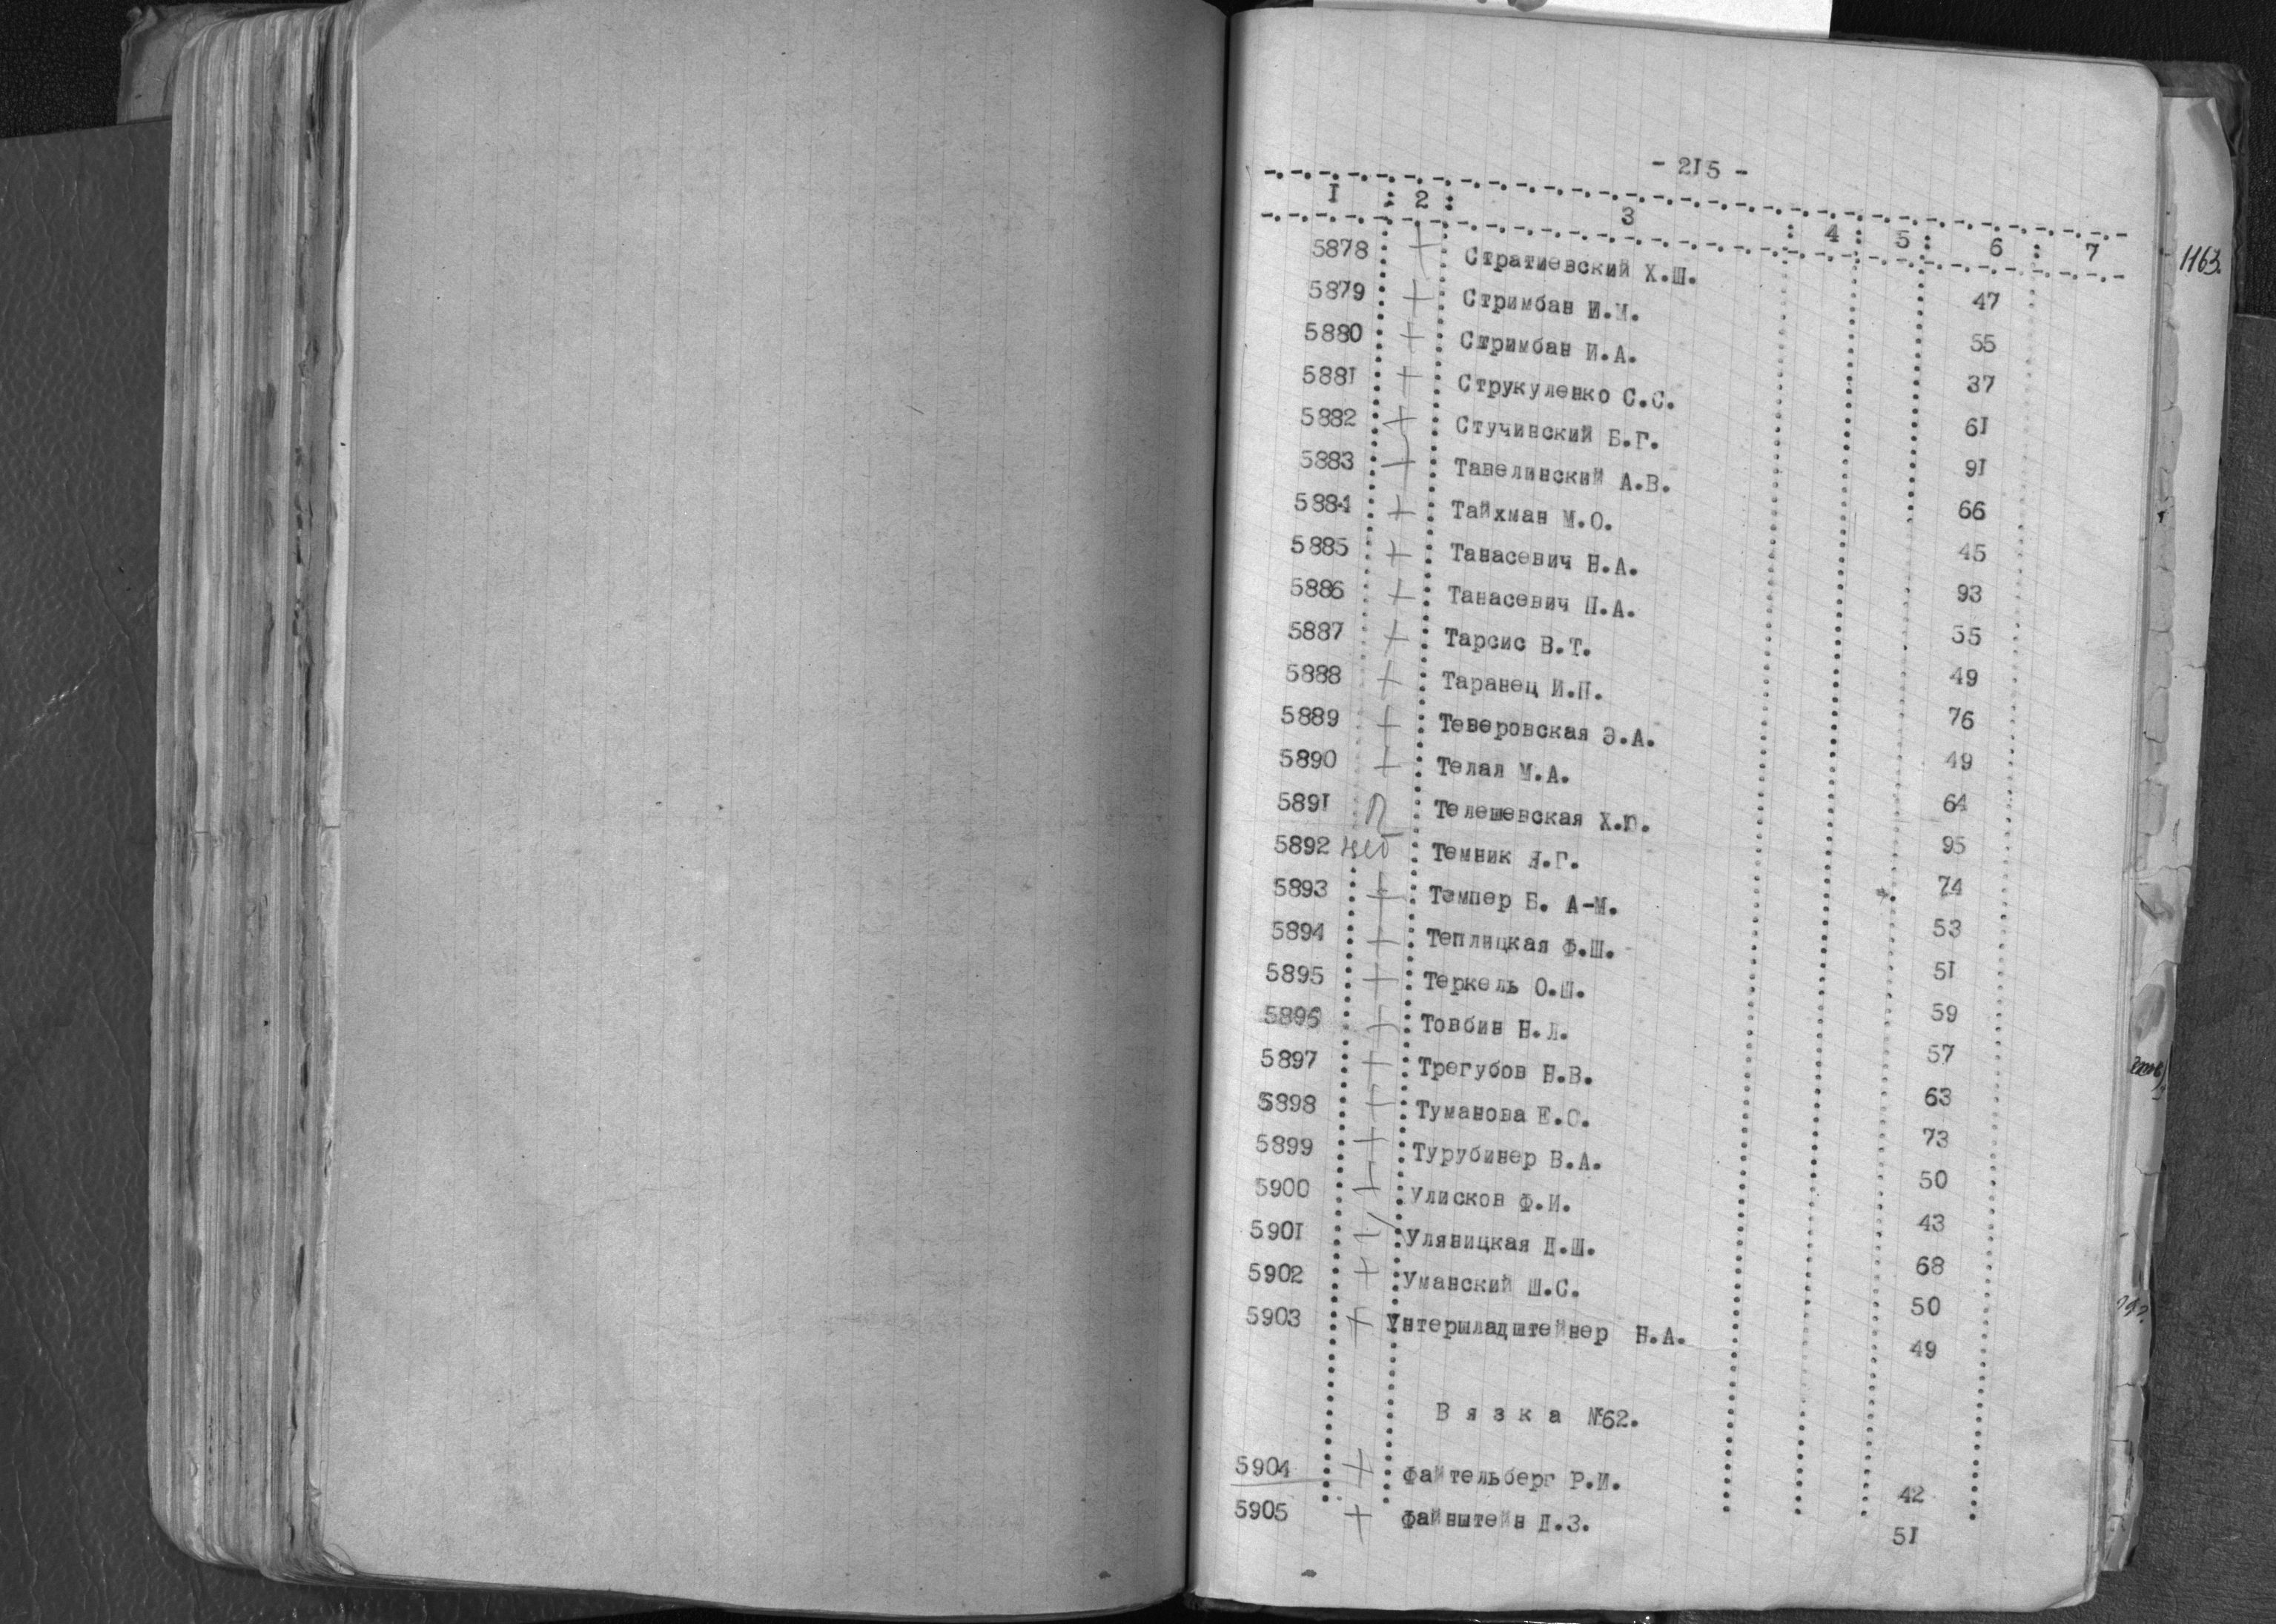 - 2I5 -
I : 2 : 3 : 4 : 5 : 6 : 7
5878 + Стратиевский Х.Ш. 47
5879 + Стримбан И.М. 55
5880 + Стримбан И.А. 37
588I + Струкуленко С.С. 6I
5882 + Стучинский Б.Г. 9I
5883 + Тавелинский А.В. 66
5884 + Тайхман М.О. 45
5885 + Танасевич Н.А. 93
5886 + Танасевич П.А. 55
5887 + Тарсис В.Т. 49
5888 + Таранец И.П. 76
5889 + Теверовская Э.А. 49
5890 + Телая М.А. 64
589I П Телешевская Х.Ю. 95
5892 Темник Я.Г. 74
5893 + Темпер Б. А-М. 53
5894 + Теплицкая Ф.Ш. 5I
5895 + Теркель О.Ш. 59
5896 + Товбин Н.Л. 57
5897 + Трегубов Н.В. 63
5898 + Туманова Е.С. 73
5899 + Турубинер В.А. 50
5900 + Улисков Ф.И. 43
590I + Уляницкая Д.Ш. 68
5902 + Уманский Ш.С. 50
5903 + Унтершладштейнер Н.А. 49
В я з к а №62.
5904 + Файтельберг Р.И. 42
5905 + Файнштейн Д.З. 5I
1163.